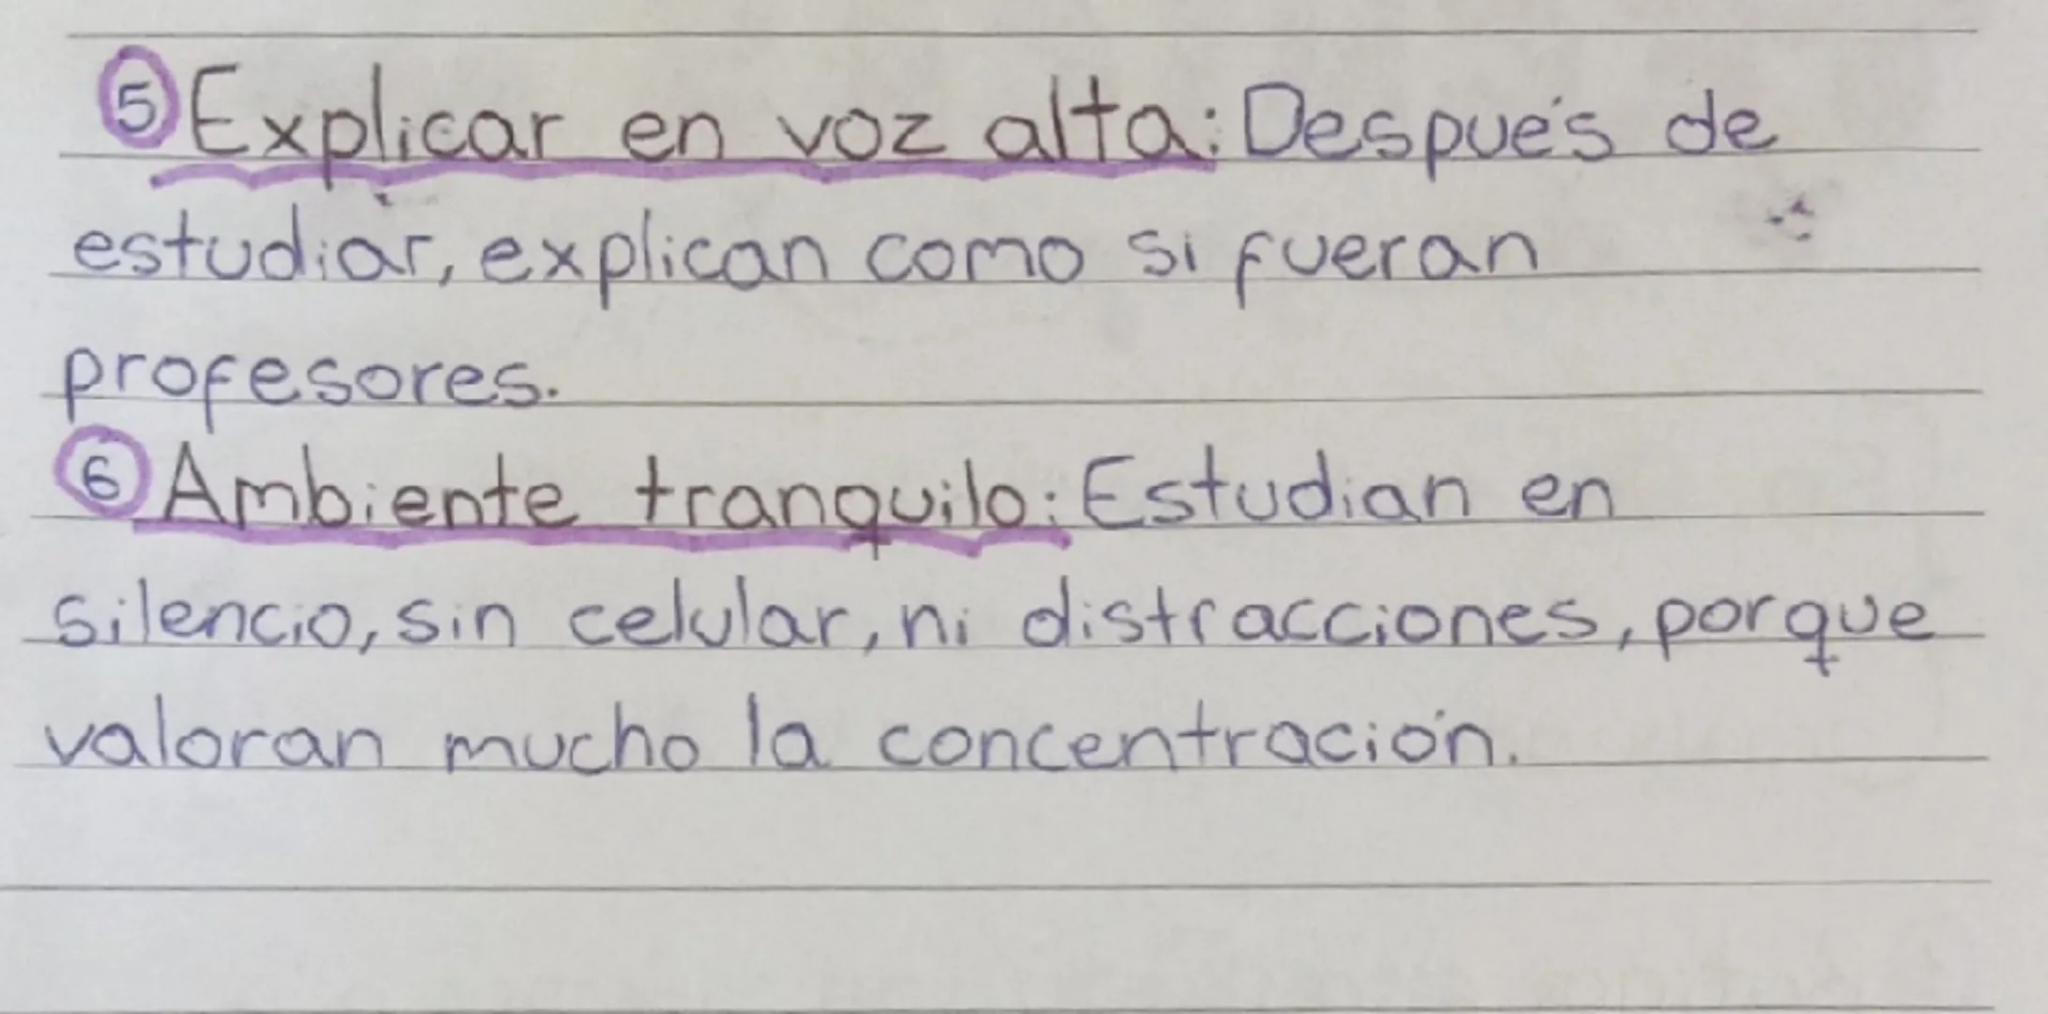 5 Explicar en voz alta: Después de
estudiar, explican como si fueran
profesores.
6 Ambiente tranquilo: Estudian en
silencio, sin celular, ni distracciones, porque
valoran mucho la concentración.